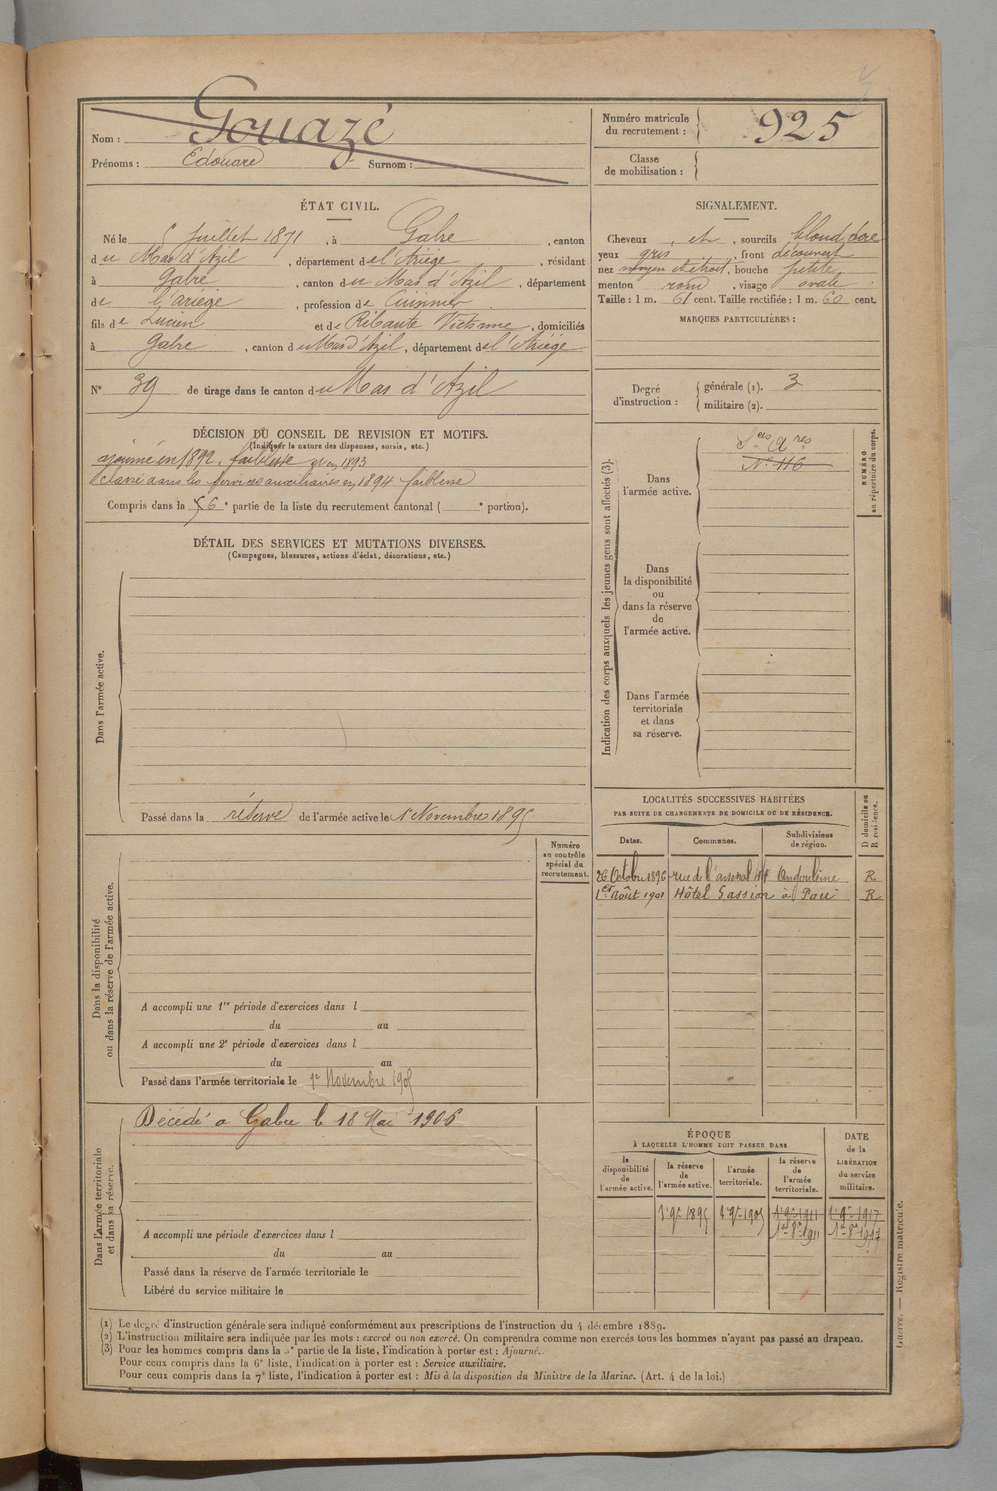 Nom : Gouazé
Prénoms : Edouard Surnom :
Numéro matricule du recrutement : 925
Classe de mobilisation :
ÉTAT CIVIL.
Né le 5 Juillet 1871, à Gabre, canton
du Mas d'Azil, département de l'Ariège, résidant
à Gabre, canton du Mas d'Azil, département
de l'ariège, profession de Cuisinier
fils de Lucien et de Ribaute Victorine, domiciliés
à Gabre, canton du Mas d'Azil, département de l'Ariège
N° 39 de tirage dans le canton du Mas d'Azil
SIGNALEMENT.
Cheveux , et , sourcils blond
yeux gris , front découvert
nez moyen et étroit, bouche petite
menton rond , visage ovale
Taille : 1 m. 61 cent. Taille rectifiée : 1 m. 60 cent.
MARQUES PARTICULIÈRES :
Degré d'instruction : générale (1). 3
militaire (2).
DÉCISION DU CONSEIL DE REVISION ET MOTIFS.
(Indiquer la nature des dispenses, sursis, etc.)
ajourné en 1892, faiblesse et en 1893
Classé dans les services auxiliaires en 1894 faiblesse
Compris dans la 6e partie de la liste du recrutement cantonal ( e portion).
DÉTAIL DES SERVICES ET MUTATIONS DIVERSES.
(Campagnes, blessures, actions d'éclat, décorations, etc.)
Dans l'armée active.
Passé dans la réserve de l'armée active le 1er Novembre 1895
Indication des corps auxquels les jeunes gens sont affectés (3).
NUMÉRO au répertoire du corps.
Dans l'armée active.
Sces Ares
N° 116
Dans la disponibilité ou dans la réserve de l'armée active.
Dans l'armée territoriale et dans sa réserve.
Numéro au contrôle spécial du recrutement.
Dans la disponibilité ou dans la réserve de l'armée active.
A accompli une 1re période d'exercices dans l
du au
A accompli une 2e période d'exercices dans l
du au
Passé dans l'armée territoriale le 1er Novembre 1905
LOCALITÉS SUCCESSIVES HABITÉES
PAR SUITE DE CHANGEMENTS DE DOMICILE OU DE RÉSIDENCE.
Dates. Communes. Subdivisions de région. D domicile ou R résidence.
26 Octobre 1896 rue de l'arsenal Angoulème R
1er Août 1901 Hôtel Gassion à Pau R
Dans l'armée territoriale et dans sa réserve.
Décédé à Gabre le 18 Mai 1906
A accompli une période d'exercices dans l
du au
Passé dans la réserve de l'armée territoriale le
Libéré du service militaire le
ÉPOQUE
À LAQUELLE L'HOMME DOIT PASSER DANS
la disponibilité de l'armée active. la réserve de l'armée active. l'armée territoriale. la réserve de l'armée territoriale. DATE de la LIBÉRATION du service militaire.
1er 9bre 1895 1er 9bre 1905 1er 9bre 1911 1er 9bre 1917
1er 8bre 1911 1er 8bre 1917
(1) Le degré d'instruction générale sera indiqué conformément aux prescriptions de l'instruction du 4 décembre 1889.
(2) L'instruction militaire sera indiquée par les mots : exercé ou non exercé. On comprendra comme non exercés tous les hommes n'ayant pas passé au drapeau.
(3) Pour les hommes compris dans la 5e partie de la liste, l'indication à porter est : Ajourné.
Pour ceux compris dans la 6e liste, l'indication à porter est : Service auxiliaire.
Pour ceux compris dans la 7e liste, l'indication à porter est : Mis à la disposition du Ministre de la Marine. (Art. 4 de la loi.)
Guerre. — Registre matricule.